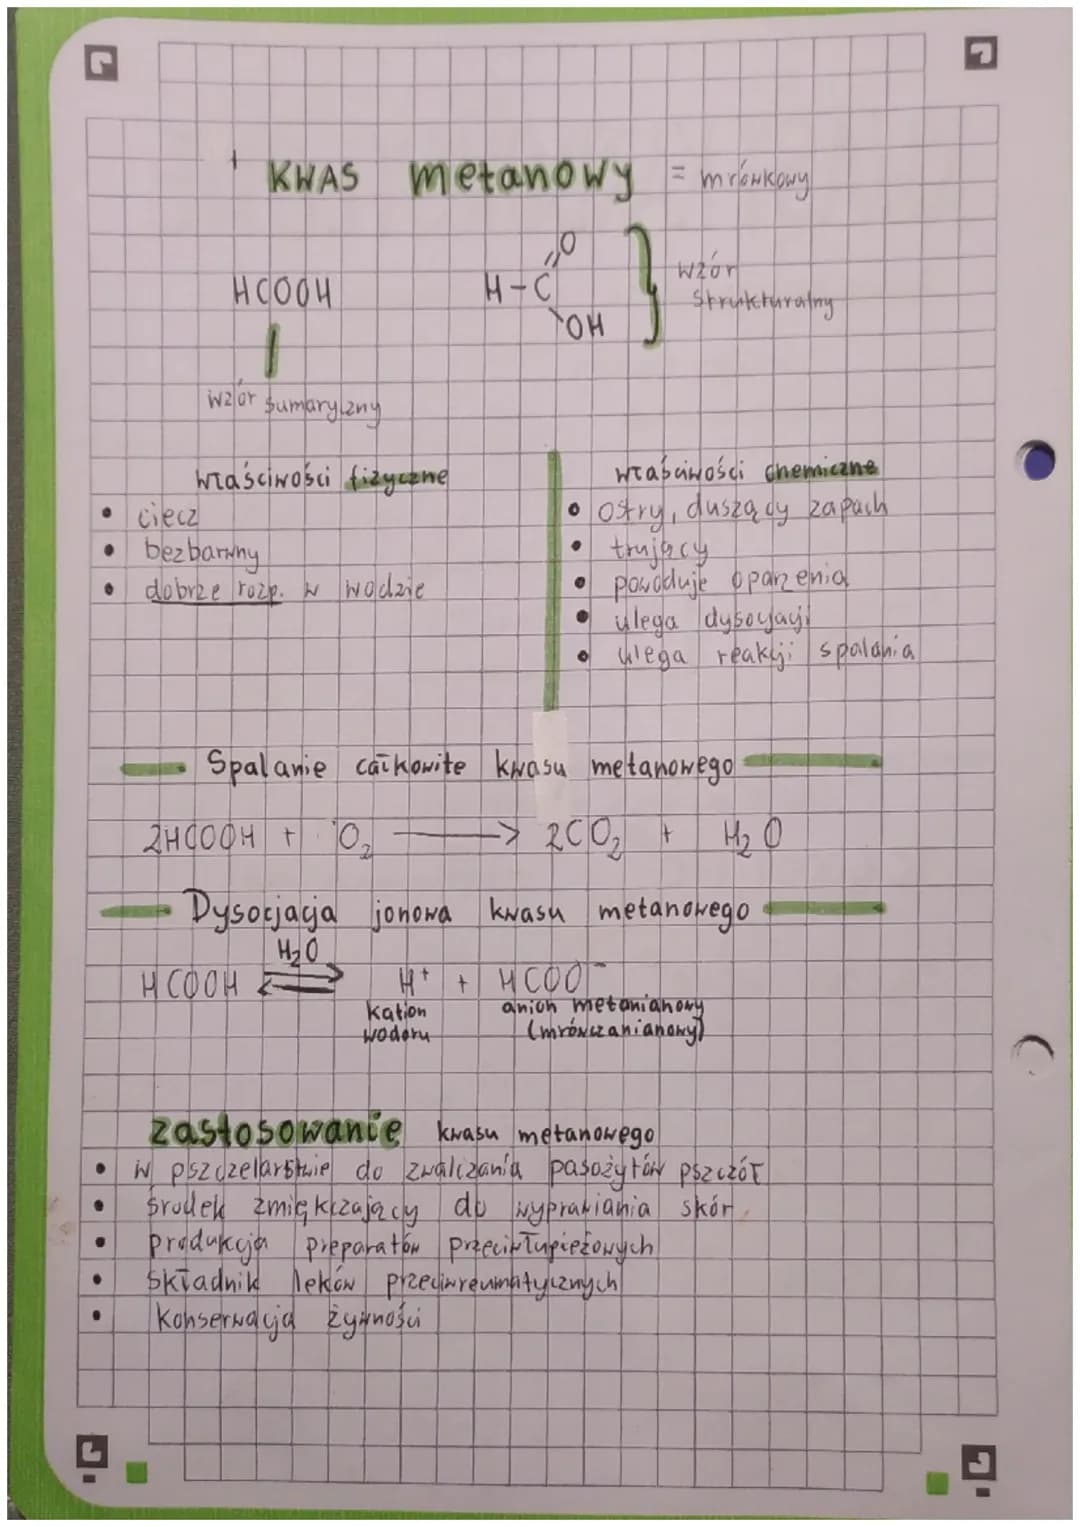 KWAS metanowy = mrówkowy
HCOOH
H-C
O
OH
wzór
strukturalny
wzór sumaryczny
właściwości fizyczne
• ciecz
• bezbarwny
• dobrze rozp. w wodzie
właściwości chemiczne
• ostry, duszący zapach
• trujący
• powoduje oparzenia
• ulega dysocjacji
• ulega reakcji spalania
Spalanie całkowite kwasu metanowego
2HCOOH + O₂ → 2CO₂ + H₂O
Dysocjacja jonowa kwasu metanowego
H₂O
HCOOH ⇄ H⁺ + HCOO⁻
kation
wodoru
anion metanianowy
(mrówczanianowy)
zastosowanie kwasu metanowego
• w pszczelarstwie do zwalczania pasożytów pszczół
• środek zmiękczający do wyprawiania skór
• produkcja preparatów przeciwłupieżowych
• składnik leków przeciwreumatycznych
• konserwacja żywności